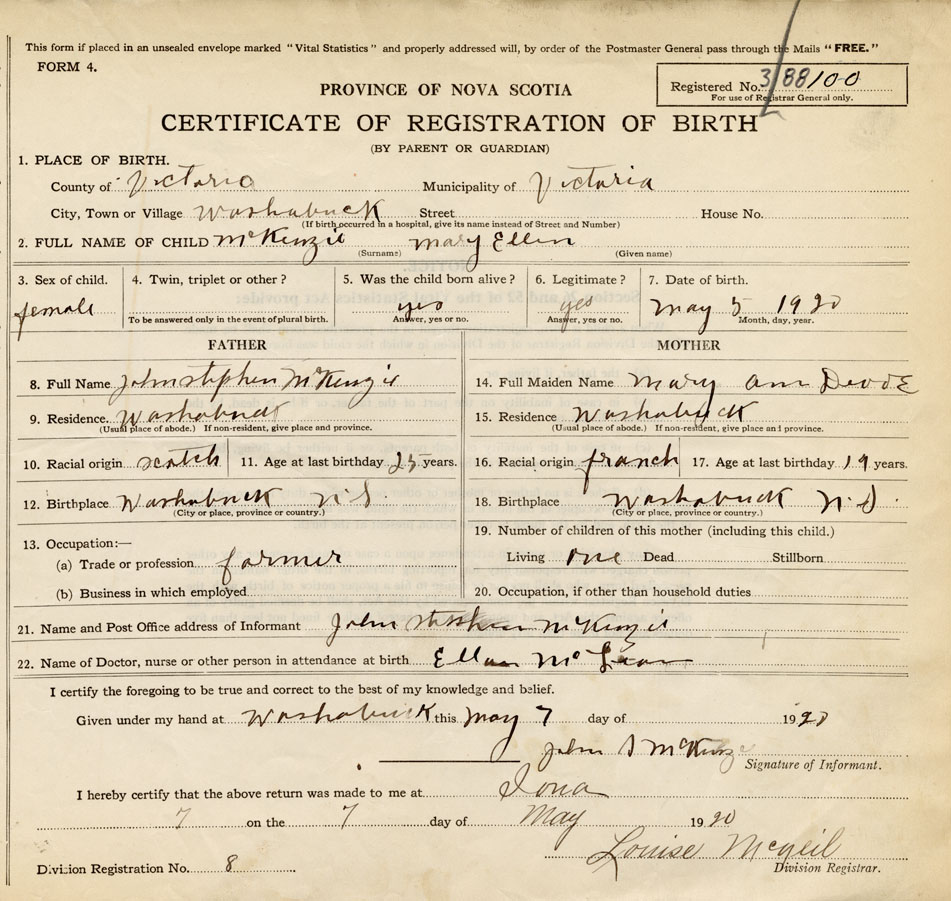 This form if placed in an unsealed envelope marked "Vital Statistics" and properly addressed will, by order of the Postmaster General pass through the Mails "FREE."
FORM 4.
Registered No. 388100
For use of Registrar General only.
PROVINCE OF NOVA SCOTIA
CERTIFICATE OF REGISTRATION OF BIRTH
(BY PARENT OR GUARDIAN)
1. PLACE OF BIRTH.
County of Victoria Municipality of Victoria
City, Town or Village Washabuck Street House No.
(If birth occurred in a hospital, give its name instead of Street and Number)
2. FULL NAME OF CHILD McKenzie Mary Ellen
(Surname) (Given name)
3. Sex of child. 4. Twin, triplet or other? 5. Was the child born alive? 6. Legitimate? 7. Date of birth.
female yes yes May 5 1920
To be answered only in the event of plural birth. Answer, yes or no. Answer, yes or no. Month, day, year.
FATHER MOTHER
8. Full Name John stephen McKenzie 14. Full Maiden Name Mary ann
9. Residence Washabuck 15. Residence Washabuck
(Usual place of abode.) If non-resident, give place and province. (Usual place of abode.) If non-resident, give place and province.
10. Racial origin scotch 11. Age at last birthday 25 years. 16. Racial origin franch 17. Age at last birthday 19 years.
12. Birthplace Washabuck N.S 18. Birthplace Washabuck N.S.
(City or place, province or country.) (City or place, province or country.)
13. Occupation:— 19. Number of children of this mother (including this child.)
(a) Trade or profession farmer Living one Dead Stillborn
(b) Business in which employed 20. Occupation, if other than household duties
21. Name and Post Office address of Informant John McKenzie
22. Name of Doctor, nurse or other person in attendance at birth
I certify the foregoing to be true and correct to the best of my knowledge and belief.
Given under my hand at Washabuck this May 7 day of 1920
John S McKenzie
Signature of Informant.
I hereby certify that the above return was made to me at Iona
7 on the 7 day of May 1920
Louise McNeil
Division Registration No. 8 Division Registrar.